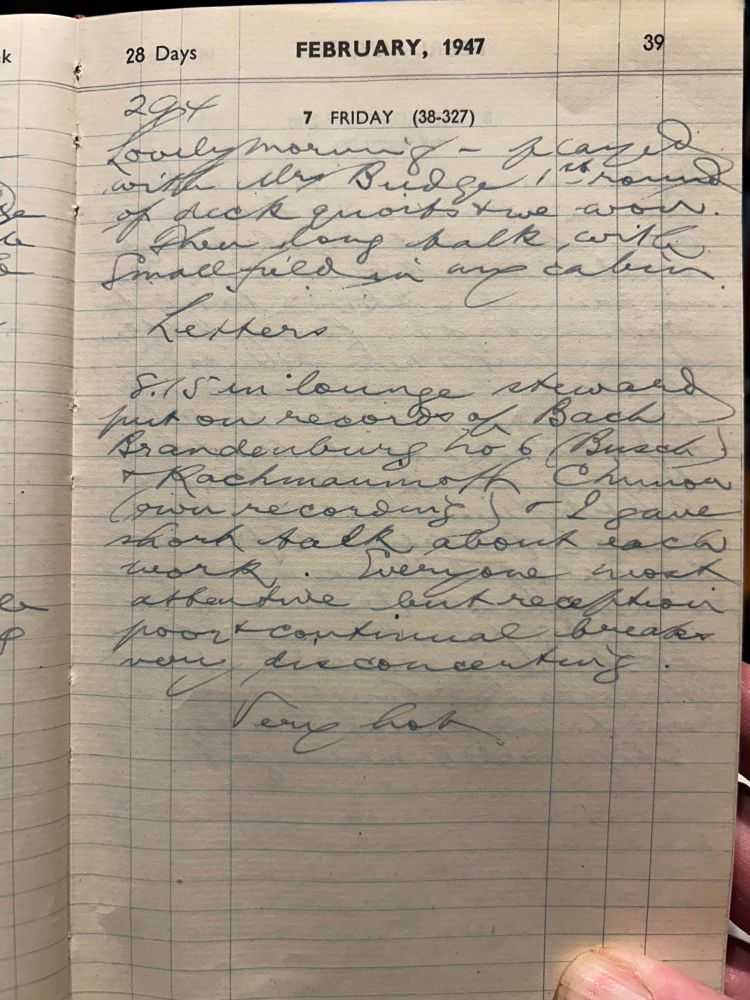 28 Days FEBRUARY, 1947 39
294
7 FRIDAY (38-327)
Lovely morning – played
with Mrs Budge 1st round
of deck quoits & we won.
Then long talk with
Smallfield in my cabin.
Letters
8.15 in lounge steward
put on records of Bach
Brandenburg No 6 (Busch)
& Rachmaninoff C minor
(own recording) & I gave
short talk about each
work. Everyone most
attentive but reception
poor & continual breaks
very disconcerting.
Very hot